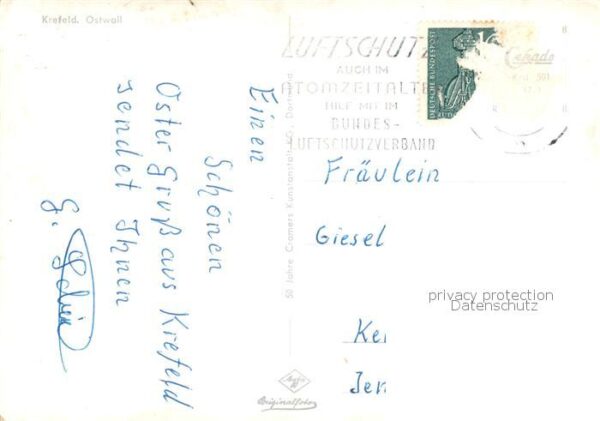 Krefeld. Ostwall
Einen
Schönen
Oster Gruß aus Krefeld
sendet Ihnen
G.
50 Jahre Cramers Kunstanstalt KG., Dortmund
LUFTSCHUTZ
AUCH IM
ATOMZEITALTE
HILF MIT IM
BUNDES-
LUFTSCHUTZVERBAND
DEUTSCHE BUNDESPOST
Cekade
Fräulein
Giesel
Ke
Jer
privacy protection
Datenschutz
Agfa
Originalfoto